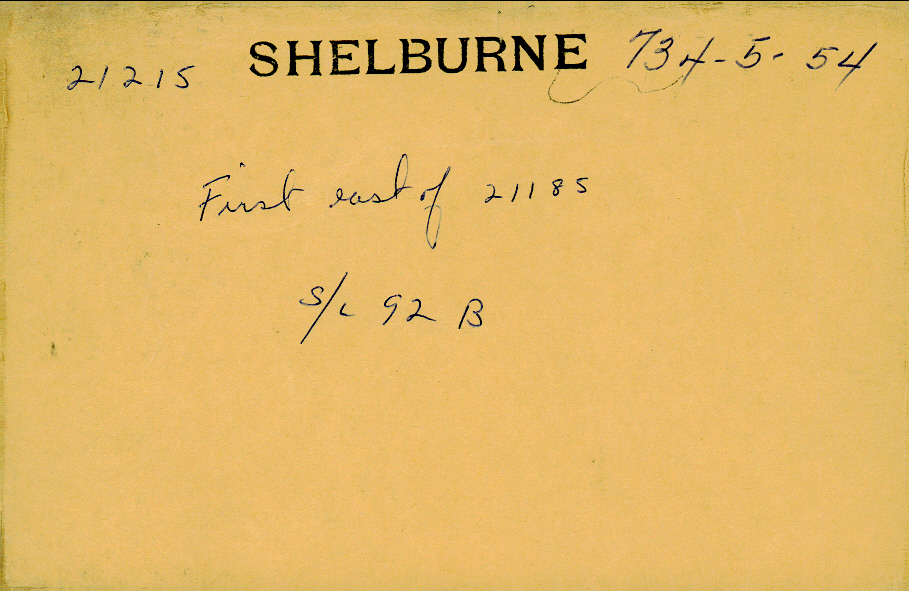 21215 SHELBURNE 734-5-54
First east of 21185
S/L 92 B